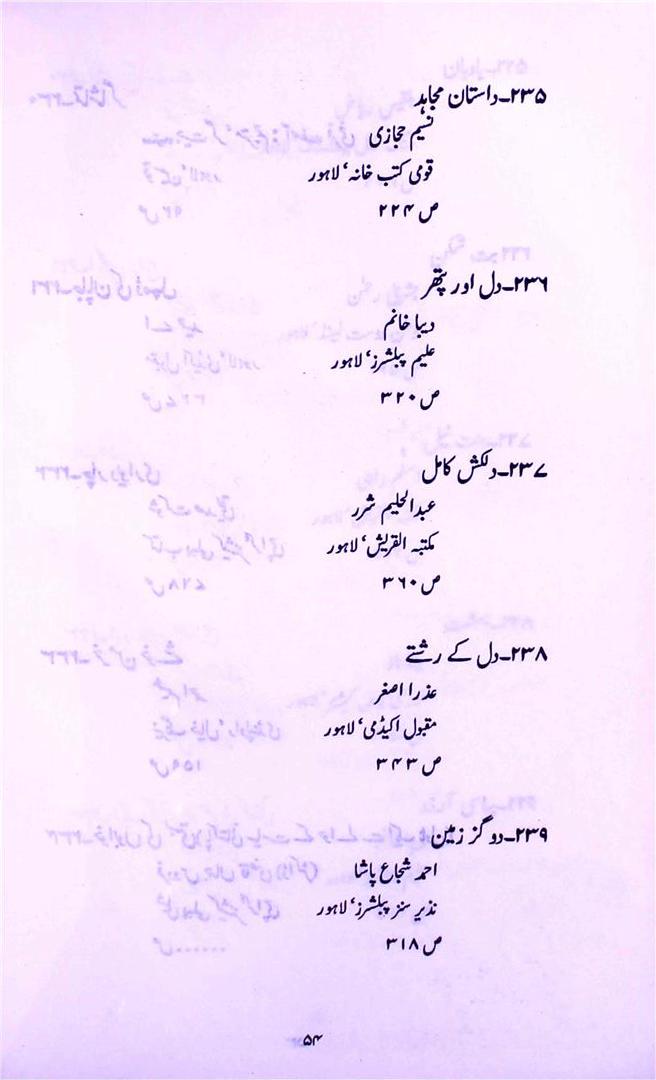 ۲۳۵۔داستان مجاہد
نسیم حجازی
قومی کتب خانہ‘ لاہور
ص ۲۲۴
۲۳۶۔دل اور پتھر
دیبا خانم
علیم پبلشرز‘ لاہور
ص ۳۲۰
۲۳۷۔دلکش کامل
عبدالحلیم شرر
مکتبہ القریش‘ لاہور
ص ۳۶۰
۲۳۸۔دل کے رشتے
عذرا اصغر
مقبول اکیڈمی‘ لاہور
ص ۳۴۳
۲۳۹۔دو گز زمین
احمد شجاع پاشا
نذیر سنز پبلشرز‘ لاہور
ص ۳۱۸
۵۴